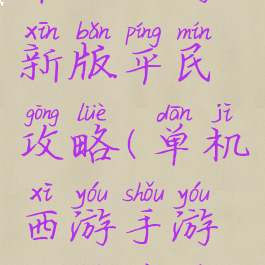 xīn bǎn píng mín
新版平民
gōng lüè dān jī
攻略(单机
xī yóu shǒu yóu
西游手游